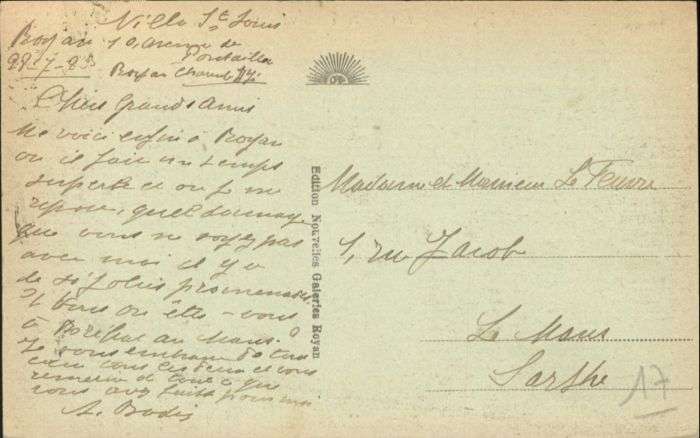 Villa St Louis
Royan 10, avenue de
Pontaillac
Royan
Chers Grands Amis
Me voici enfin à Royan
ou il fait un temps
superbe et ou je me
repose, quel dommage
que vous ne soyez pas
avec moi il y a
de si jolies promenades
Et vous ou êtes-vous
à ou au Mans?
Je vous embrasse de tout
cœur tous les deux et vous
remercie de tout ce que
vous avez fait pour moi
A. Bodis
Edition Nouvelles Galeries Royan
Madame et Monsieur Le Feuvre
1, rue Jacob
Le Mans
Sarthe
17